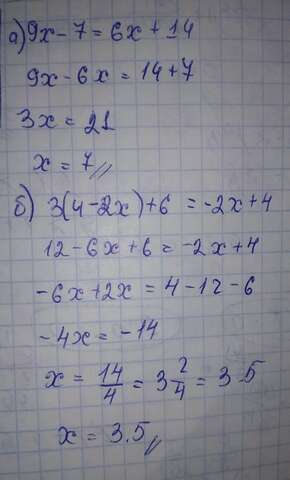 а) 9x - 7 = 6x + 14
9x - 6x = 14 + 7
3x = 21
x = 7 //
б) 3(4 - 2x) + 6 = -2x + 4
12 - 6x + 6 = -2x + 4
-6x + 2x = 4 - 12 - 6
-4x = -14
x = 14/4 = 3 2/4 = 3.5
x = 3.5 //